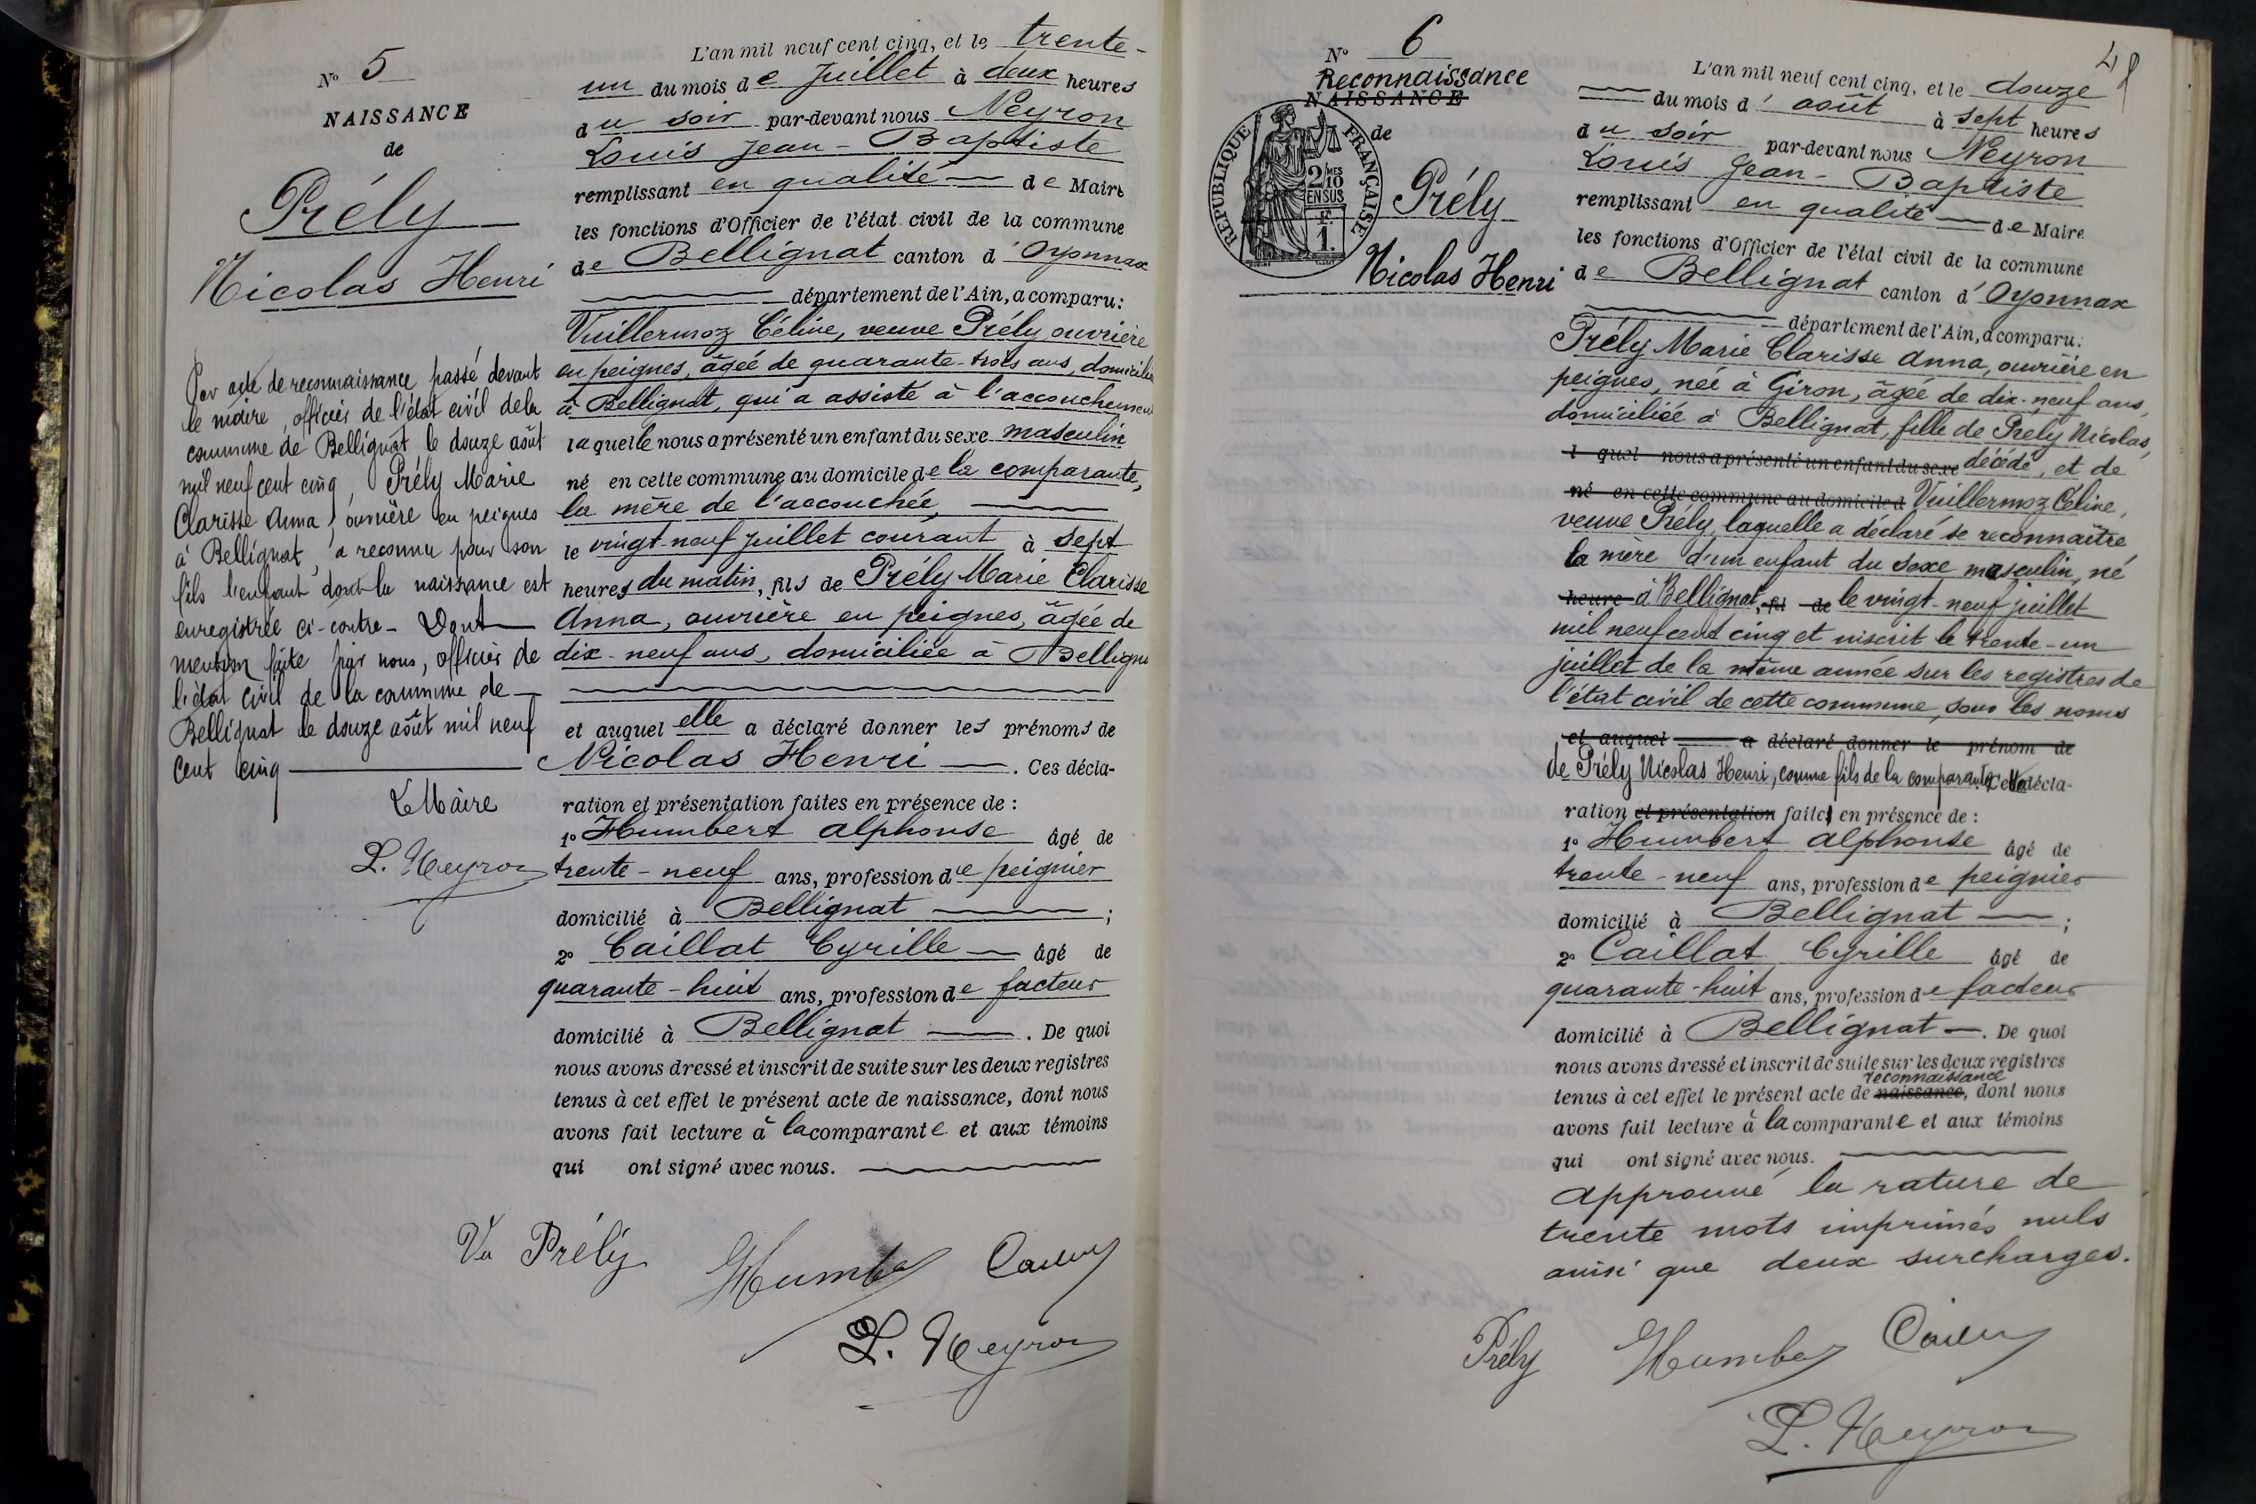 N° 5
NAISSANCE
de
Prély
Nicolas Henri
Par acte de reconnaissance passé devant
le maire, officier de l'état civil de la
commune de Bellignat le douze août
mil neuf cent cinq, Prély Marie
Clarisse Anna, ouvrière en peignes
à Bellignat, a reconnu pour son
fils l'enfant dont la naissance est
enregistrée ci-contre - Dont
mention faite par nous, officier de
l'état civil de la commune de
Bellignat le douze août mil neuf
cent cinq
Le Maire
L. Neyron
L'an mil neuf cent cinq, et le trente-
un du mois de Juillet à deux heures
du soir par-devant nous Neyron
Louis Jean-Baptiste
remplissant en qualité de Maire
les fonctions d'Officier de l'état civil de la commune
de Bellignat canton d'Oyonnax
département de l'Ain, a comparu:
Vuillermoz Céline, veuve Prély, ouvrière
en peignes, âgée de quarante-trois ans, domiciliée
à Bellignat, qui a assisté à l'accouchement
laquelle nous a présenté un enfant du sexe masculin
né en cette commune au domicile de la comparante,
la mère de l'accouchée
le vingt-neuf juillet courant à sept
heures du matin, fils de Prély Marie Clarisse
Anna, ouvrière en peignes, âgée de
dix-neuf ans, domiciliée à Bellignat
et auquel elle a déclaré donner les prénoms de
Nicolas Henri. Ces décla-
ration et présentation faites en présence de :
1° Humbert Alphonse âgé de
trente-neuf ans, profession de peignier
domicilié à Bellignat ;
2° Caillat Cyrille âgé de
quarante-huit ans, profession de facteur
domicilié à Bellignat. De quoi
nous avons dressé et inscrit de suite sur les deux registres
tenus à cet effet le présent acte de naissance, dont nous
avons fait lecture à la comparante et aux témoins
qui ont signé avec nous.
Ve Prély Humbert Caillat
L. Neyron
48
N° 6
Reconnaissance
NAISSANCE
de
REPUBLIQUE FRANÇAISE
2 MES
10
EN SUS
F.
1.
Prély
Nicolas Henri
L'an mil neuf cent cinq, et le douze
du mois d'août à sept heures
du soir par-devant nous Neyron
Louis Jean-Baptiste
remplissant en qualité de Maire
les fonctions d'Officier de l'état civil de la commune
de Bellignat canton d'Oyonnax
département de l'Ain, a comparu:
Prély Marie Clarisse Anna, ouvrière en
peignes, née à Giron, âgée de dix-neuf ans,
domiciliée à Bellignat, fille de Prély Nicolas,
l quel nous a présenté un enfant du sexe décédé, et de
né en cette commune au domicile d Vuillermoz Céline,
veuve Prély, laquelle a déclaré se reconnaître
la mère d'un enfant du sexe masculin, né
heure à Bellignat, fil de le vingt-neuf juillet
mil neuf cent cinq et inscrit le trente-un
juillet de la même année sur les registres de
l'état civil de cette commune, sous les noms
et auquel a déclaré donner le prénom de
de Prély Nicolas Henri, comme fils de la comparante. Cette décla-
ration et présentation faites en présence de :
1° Humbert Alphonse âgé de
trente-neuf ans, profession de peignier
domicilié à Bellignat ;
2° Caillat Cyrille âgé de
quarante-huit ans, profession de facteur
domicilié à Bellignat. De quoi
nous avons dressé et inscrit de suite sur les deux registres
reconnaissance
tenus à cet effet le présent acte de naissance, dont nous
avons fait lecture à la comparante et aux témoins
qui ont signé avec nous.
Approuvé la rature de
trente mots imprimés nuls
ainsi que deux surcharges.
Prély Humbert Caillat
L. Neyron